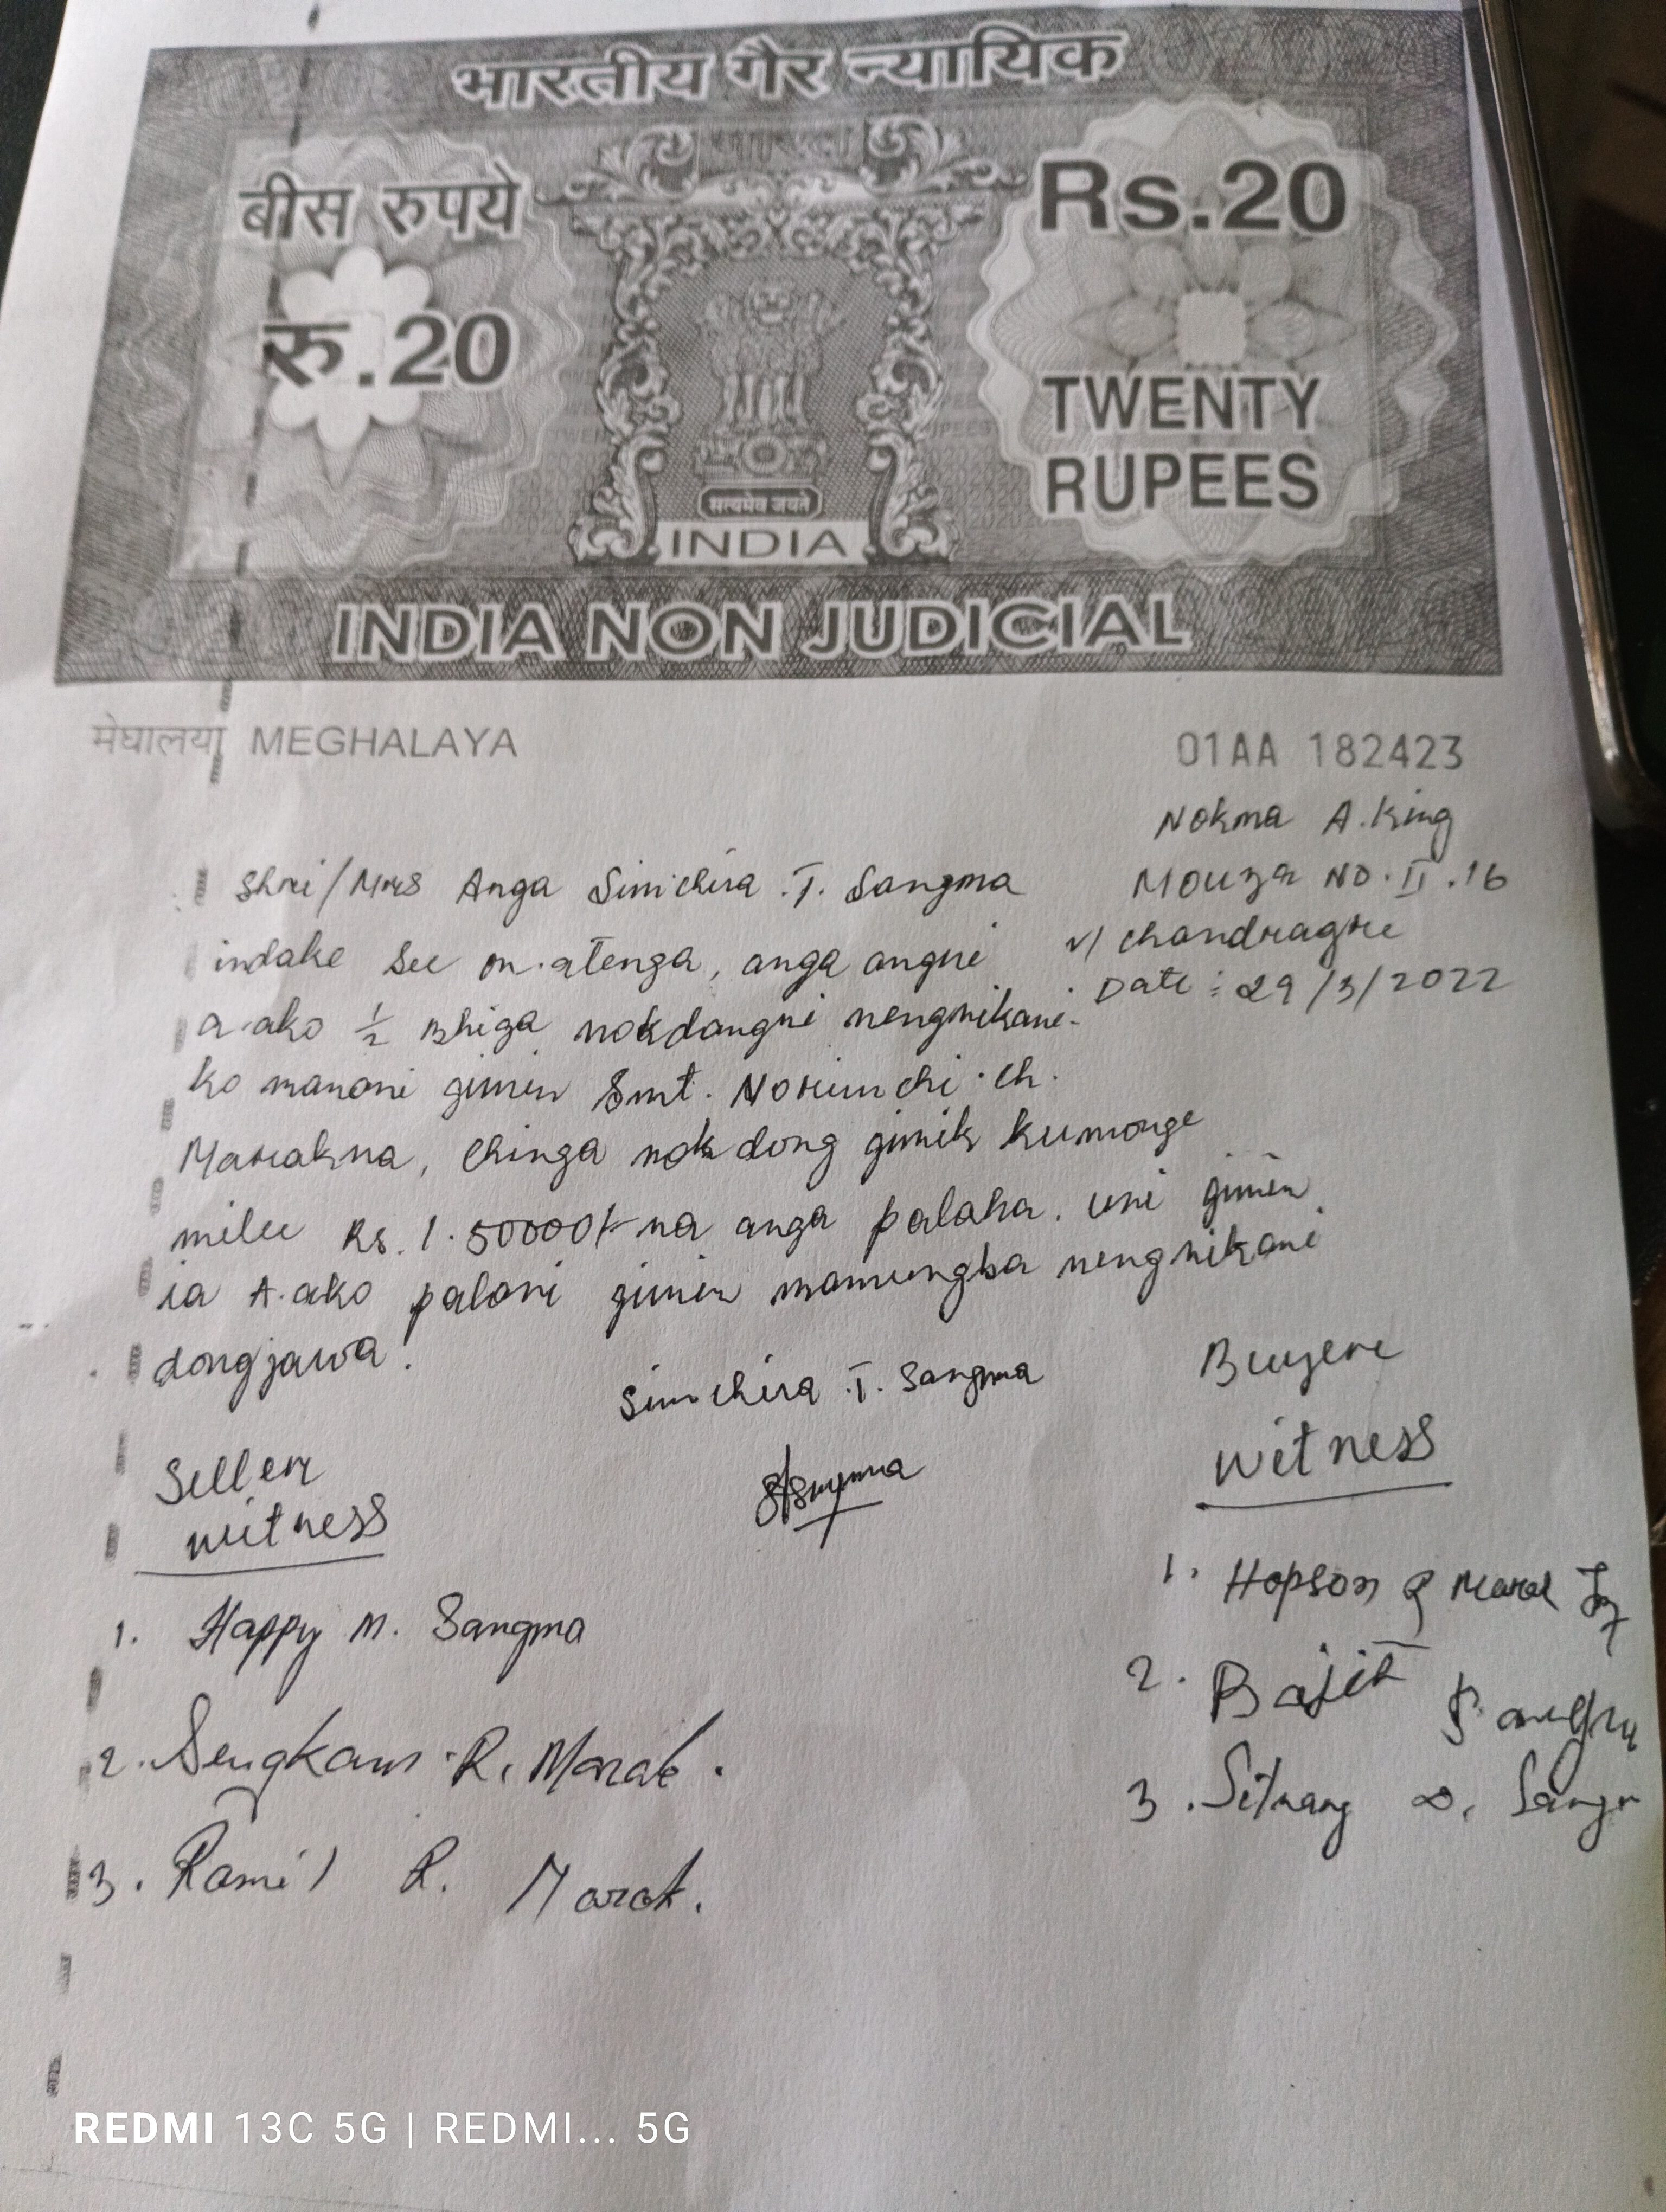 भारतीय गैर न्यायिक
भारत
बीस रुपये
रु.20
Rs.20
TWENTY
RUPEES
सत्यमेव जयते
INDIA
INDIA NON JUDICIAL
मेघालया MEGHALAYA
01AA 182423
Nokma A.King
Mouza NO. II .16
v/ chandragre
Date : 29/3/2022
Shri/Mrs Anga Simchira .T. Sangma
indake see on·atenga, anga angni
a·ako 1/2 Bhiga nokdangni nengnikani-
ko manani gimin Smt. Norimchi .ch.
Marakna, chinga nokdong gimik kumonge
milee Rs. 1.50000/- na anga palaha. uni gimin
ia A.ako palani gimin mamungba nengnikani
dongjawa.
Simchira .T. Sangma
Buyer
Seller
witness
witness
1. Happy M. Sangma
2. Sengkam R. Marak.
3. Ramil R. Marak.
1. Hopson Marak
2. Bajit
3. Sitnang
REDMI 13C 5G | REDMI... 5G